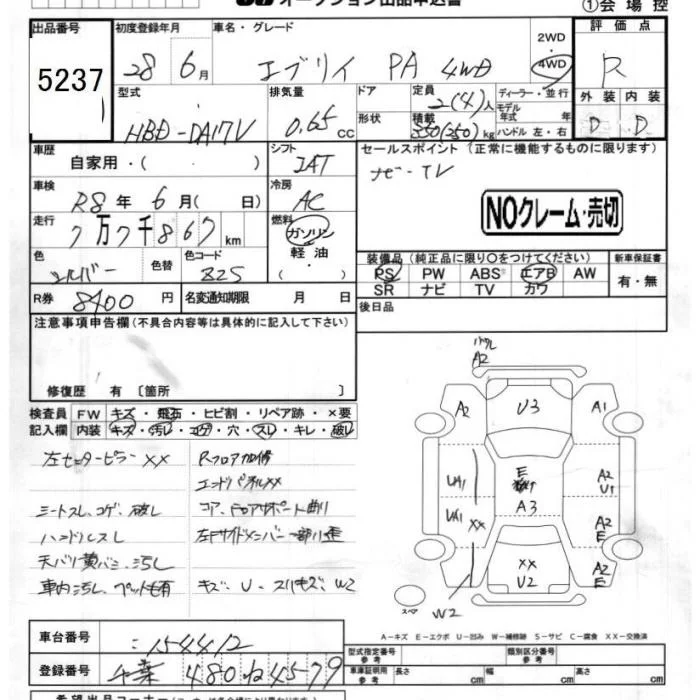 オークション出品申込書
①会場控
出品番号 初度登録年月 車名・グレード 評価点
5237 28年 6月 エブリイ PA 4WD 2WD 4WD R
型式 排気量 ドア 定員 ディーラー・並行 外装 内装
HBD-DA17V 0.65 CC 形状 2(4)人 モデル年式 年 D D
積載 350(250)kg ハンドル 左・右
車歴 シフト セールスポイント (正常に機能するものに限ります)
自家用・( ) IAT ナビ-TV
車検 冷房
R8年 6月( 日) AC
NOクレーム・売切
走行 燃料
7万7千867km ガソリン
軽油・( )
色 色替 色コード 装備品 (純正品に限り○をつけてください) 新車保証書
シルバー Z2S PS PW ABS エアB AW 有・無
SR ナビ TV カワ
R券 8400円 名変通知期限 月 日 後日品
注意事項申告欄 (不具合内容等は具体的に記入して下さい)
修復歴 有 〔箇所 〕
検査員 FW キズ・飛石・ヒビ割・リペア跡・×要
記入欄 内装 キズ・汚レ・コゲ・穴・スレ・キレ・破レ
左センターピラーXX Rフロア加修
エンドパネルXX
シートスレ、コゲ、破レ コア、ドアサポート曲り
ハンドルスレ 左Fサイドメンバー一部歪
天バリ黄バミ、汚レ
車内汚レ、ペット毛有 キズ、U、スリキズ、W2
バックル
A2
A2 U3 A1
UA1 E A2
U1
A3
UA1 XX A2
E
XX
U2 A2
E
スペア W2
A-キズ E-エクボ U-凹み W-補修跡 S-サビ C-腐食 XX-交換済
車台番号 154412
登録番号 千葉 480 ね 4579
型式指定番号 参考 類別区分番号 参考
車庫証明用 参考 長さ cm 幅 cm 高さ cm